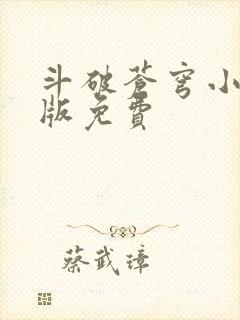 斗破苍穹小
版免費
蔡武璋